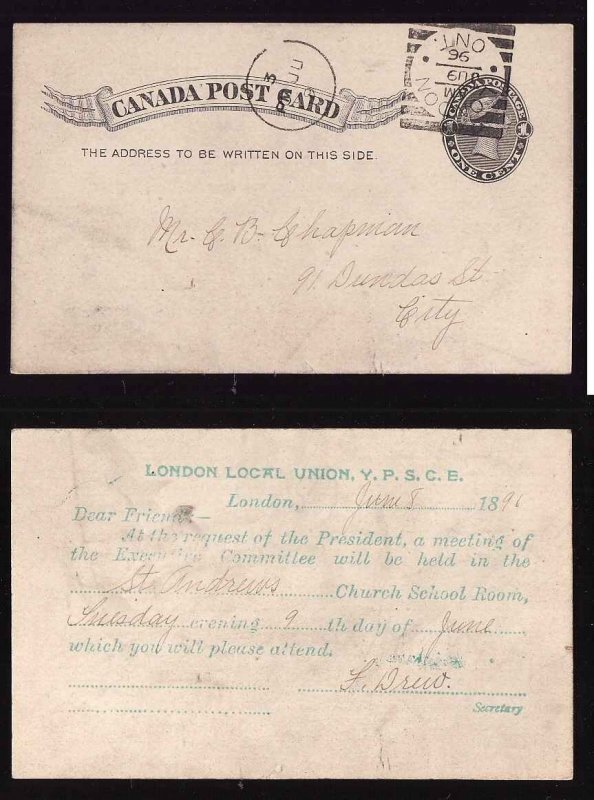 CANADA POST CARD
THE ADDRESS TO BE WRITTEN ON THIS SIDE.
LONDON
ONT.
96
CANADA POSTAGE
1 ONE CENT 1
Mr. C. B. Chapman
91 Dundas St
City
LONDON LOCAL UNION, Y. P. S. C. E.
London, June 8 1896
Dear Friend:—
At the request of the President, a meeting of
the Executive Committee will be held in the
St. Andrews Church School Room,
Tuesday evening 9 th day of June
which you will please attend.
F. Drew.
Secretary